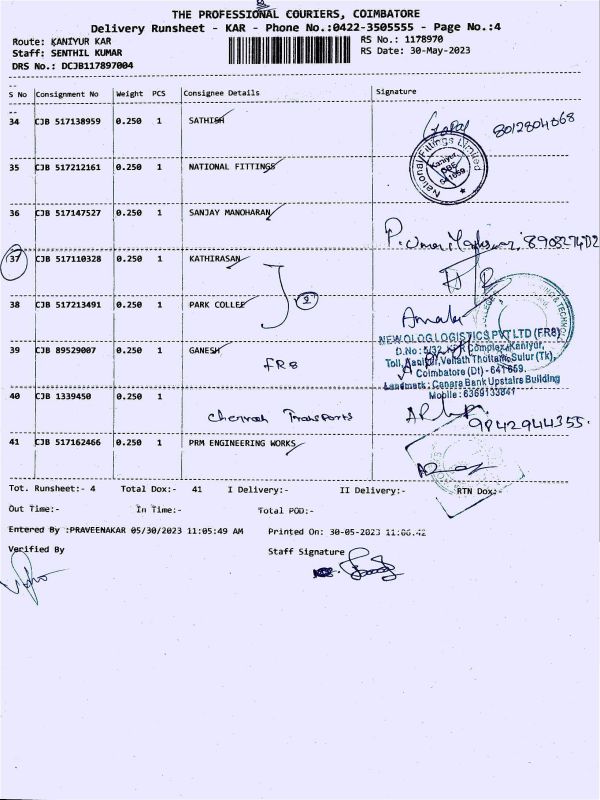 THE PROFESSIONAL COURIERS, COIMBATORE
Delivery Runsheet - KAR - Phone No.:0422-3505555 - Page No.:4
Route: KANIYUR KAR RS No.: 1178970
Staff: SENTHIL KUMAR RS Date: 30-May-2023
DRS No.: DCJB117897004
S No Consignment No Weight PCS Consignee Details Signature
34 CJB 517138959 0.250 1 SATHISH 8012804068
National Fittings Limited
Kaniyur
641659
35 CJB 517212161 0.250 1 NATIONAL FITTINGS
36 CJB 517147527 0.250 1 SANJAY MANOHARAN
37 CJB 517110328 0.250 1 KATHIRASAN
38 CJB 517213491 0.250 1 PARK COLLEE
NEWOLOG LOGISTICS PVT LTD (FR8)
39 CJB 89529007 0.250 1 GANESH
FR8
D.No: 5/32, Complex, Kaniyur,
Sulur (Tk),
Coimbatore (Dt) - 641 659.
Landmark : Canara Bank Upstairs Building
Mobile : 6369133841
40 CJB 1339450 0.250 1
Transports
9842944355.
41 CJB 517162466 0.250 1 PRM ENGINEERING WORKS
Tot. Runsheet:- 4 Total Dox:- 41 I Delivery:- II Delivery:- RTN Dox:-
Out Time:- In Time:- Total POD:-
Entered By :PRAVEENAKAR 05/30/2023 11:05:49 AM Printed On: 30-05-2023 11:06:42
Verified By Staff Signature